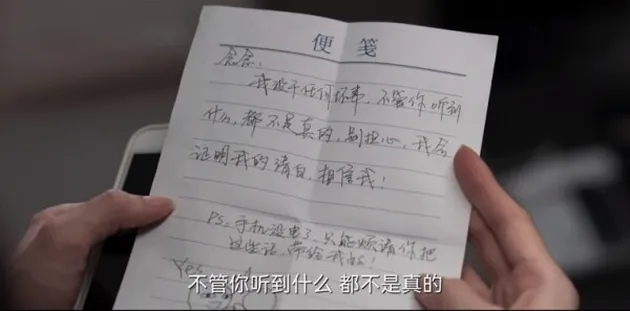 便笺
念念:
我没干任何坏事,不管你听到
什么,都不是真的,别担心,我会
证明我的清白,相信我!
PS. 手机没电了,只能烦请你把
这些话,带给我的!
Yes
不管你听到什么 都不是真的